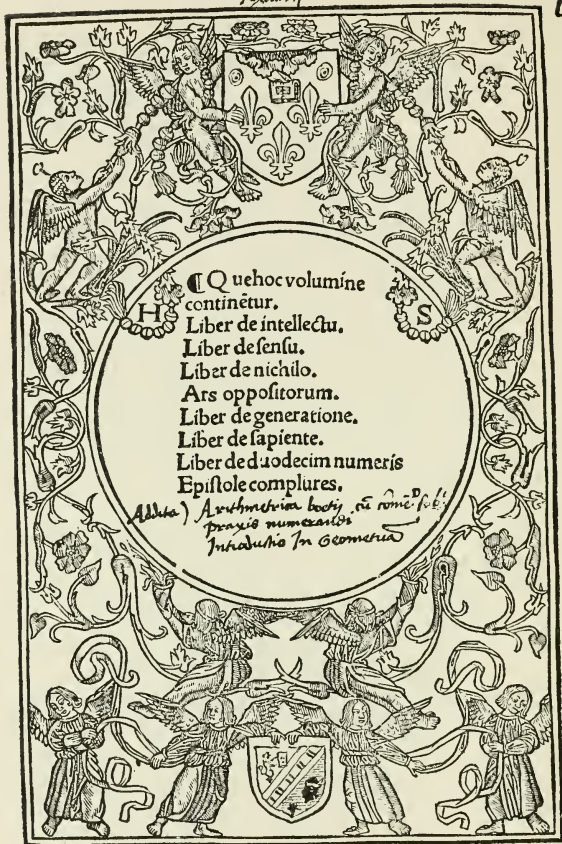 ¶ Que hoc volumine
continẽtur.
H S
Liber de intellectu.
Liber de ſenſu.
Liber de nichilo.
Ars oppoſitorum.
Liber de generatione.
Liber de ſapiente.
Liber de duodecim numeris
Epiſtole complures.
Addita) Arithmetica boetij cũ
praxis numerandi
Introductio In Geometria